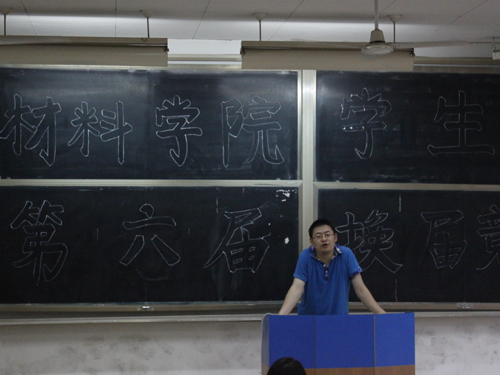 材料学院学生
第六届换届